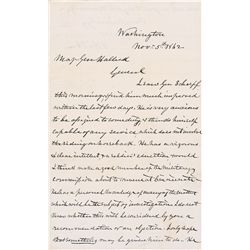 Washington
Nov. 5th 1862
Maj. Gen Halleck
General
I saw Gen Schoepf
this morning & find him much improved
within the last few days. He is very anxious
to be assigned to something & thinks himself
capable of any service which does not involve
the riding on horseback. He has a vigorous
& clear intellect, & education would I
think make a good member of the military
commission about to convene
has a personal knowledge of many of the matters
which will be the subject of investigation. I do not
know whether this will be considered by you a
recommendation or an objection. I only hope
that something may be given him to do. He